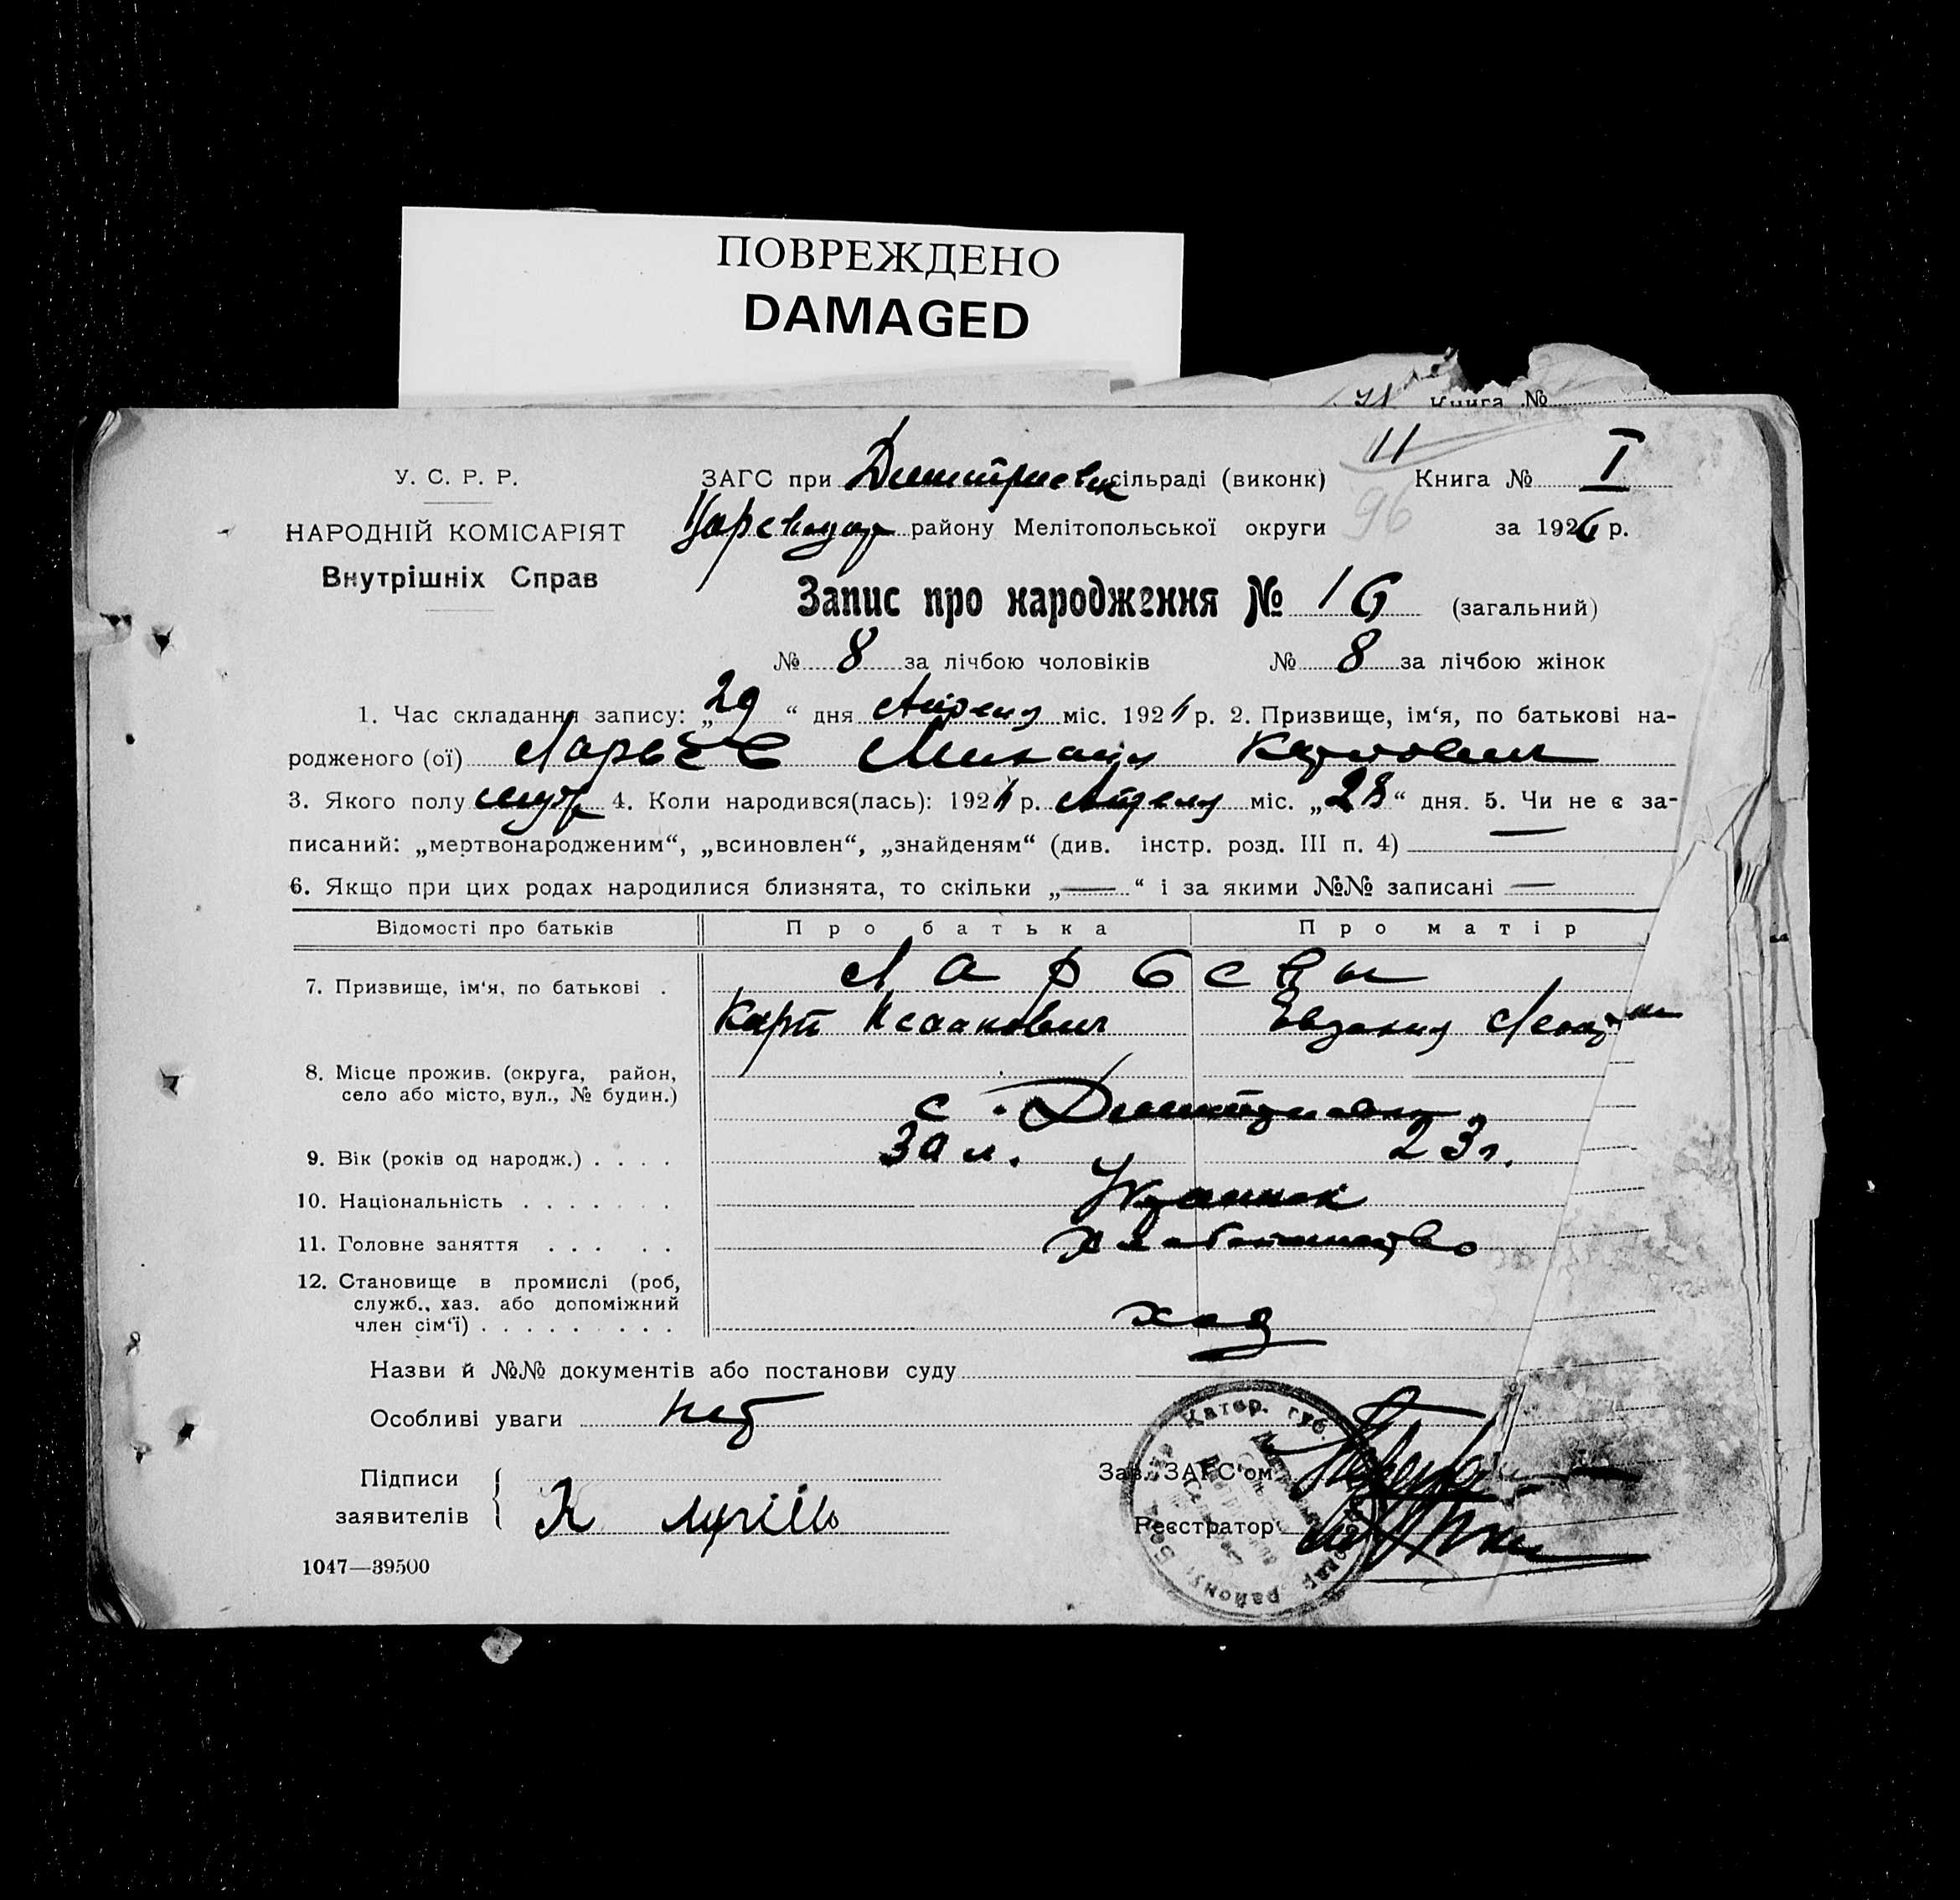 ПОВРЕЖДЕНО
DAMAGED
Книга №
У. С. Р. Р.
НАРОДНІЙ КОМІСАРІЯТ
Внутрішніх Справ
ЗАГС при Димитриевск сільраді (виконк) 11 Книга № I
району Мелітопольської округи 96 за 1926 р.
Запис про народження № 16 (загальний)
№ 8 за лічбою чоловіків № 8 за лічбою жінок
1. Час складання запису: „29“ дня Апреля міс. 192 р. 2. Призвище, ім‘я, по батькові на-
родженого (ої) Ларьев Михаил Карпович
3. Якого полу муж 4. Коли народився(лась): 192 р. Апреля міс. „28“ дня. 5. Чи не є за-
писаний: „мертвонародженим“, „всиновлен“, „знайденям“ (див. інстр. розд. III п. 4) —
6. Якщо при цих родах народилися близнята, то скільки „—“ і за якими №№ записані —
Відомості про батьків Про батька Про матір
7. Призвище, ім‘я, по батькові . Ларьевы
Карп Исаакович Евдокия
8. Місце прожив. (округа, район,
село або місто, вул., № будин.) с. Димитриевка
9. Вік (років од народж.) . . . . 30 л. 23 г.
10. Національність . . . . . . .
11. Головне заняття . . . . . Хлебопашество
12. Становище в промислі (роб,
служб., хаз. або допоміжний
член сім‘ї) . . . . . . . . . хоз
Назви й №№ документів або постанови суду
Особливі уваги нет
Підписи
заявителів К
Зав. ЗАГС‘ом
Реєстратор
Катер. губ.
району
1047—39500